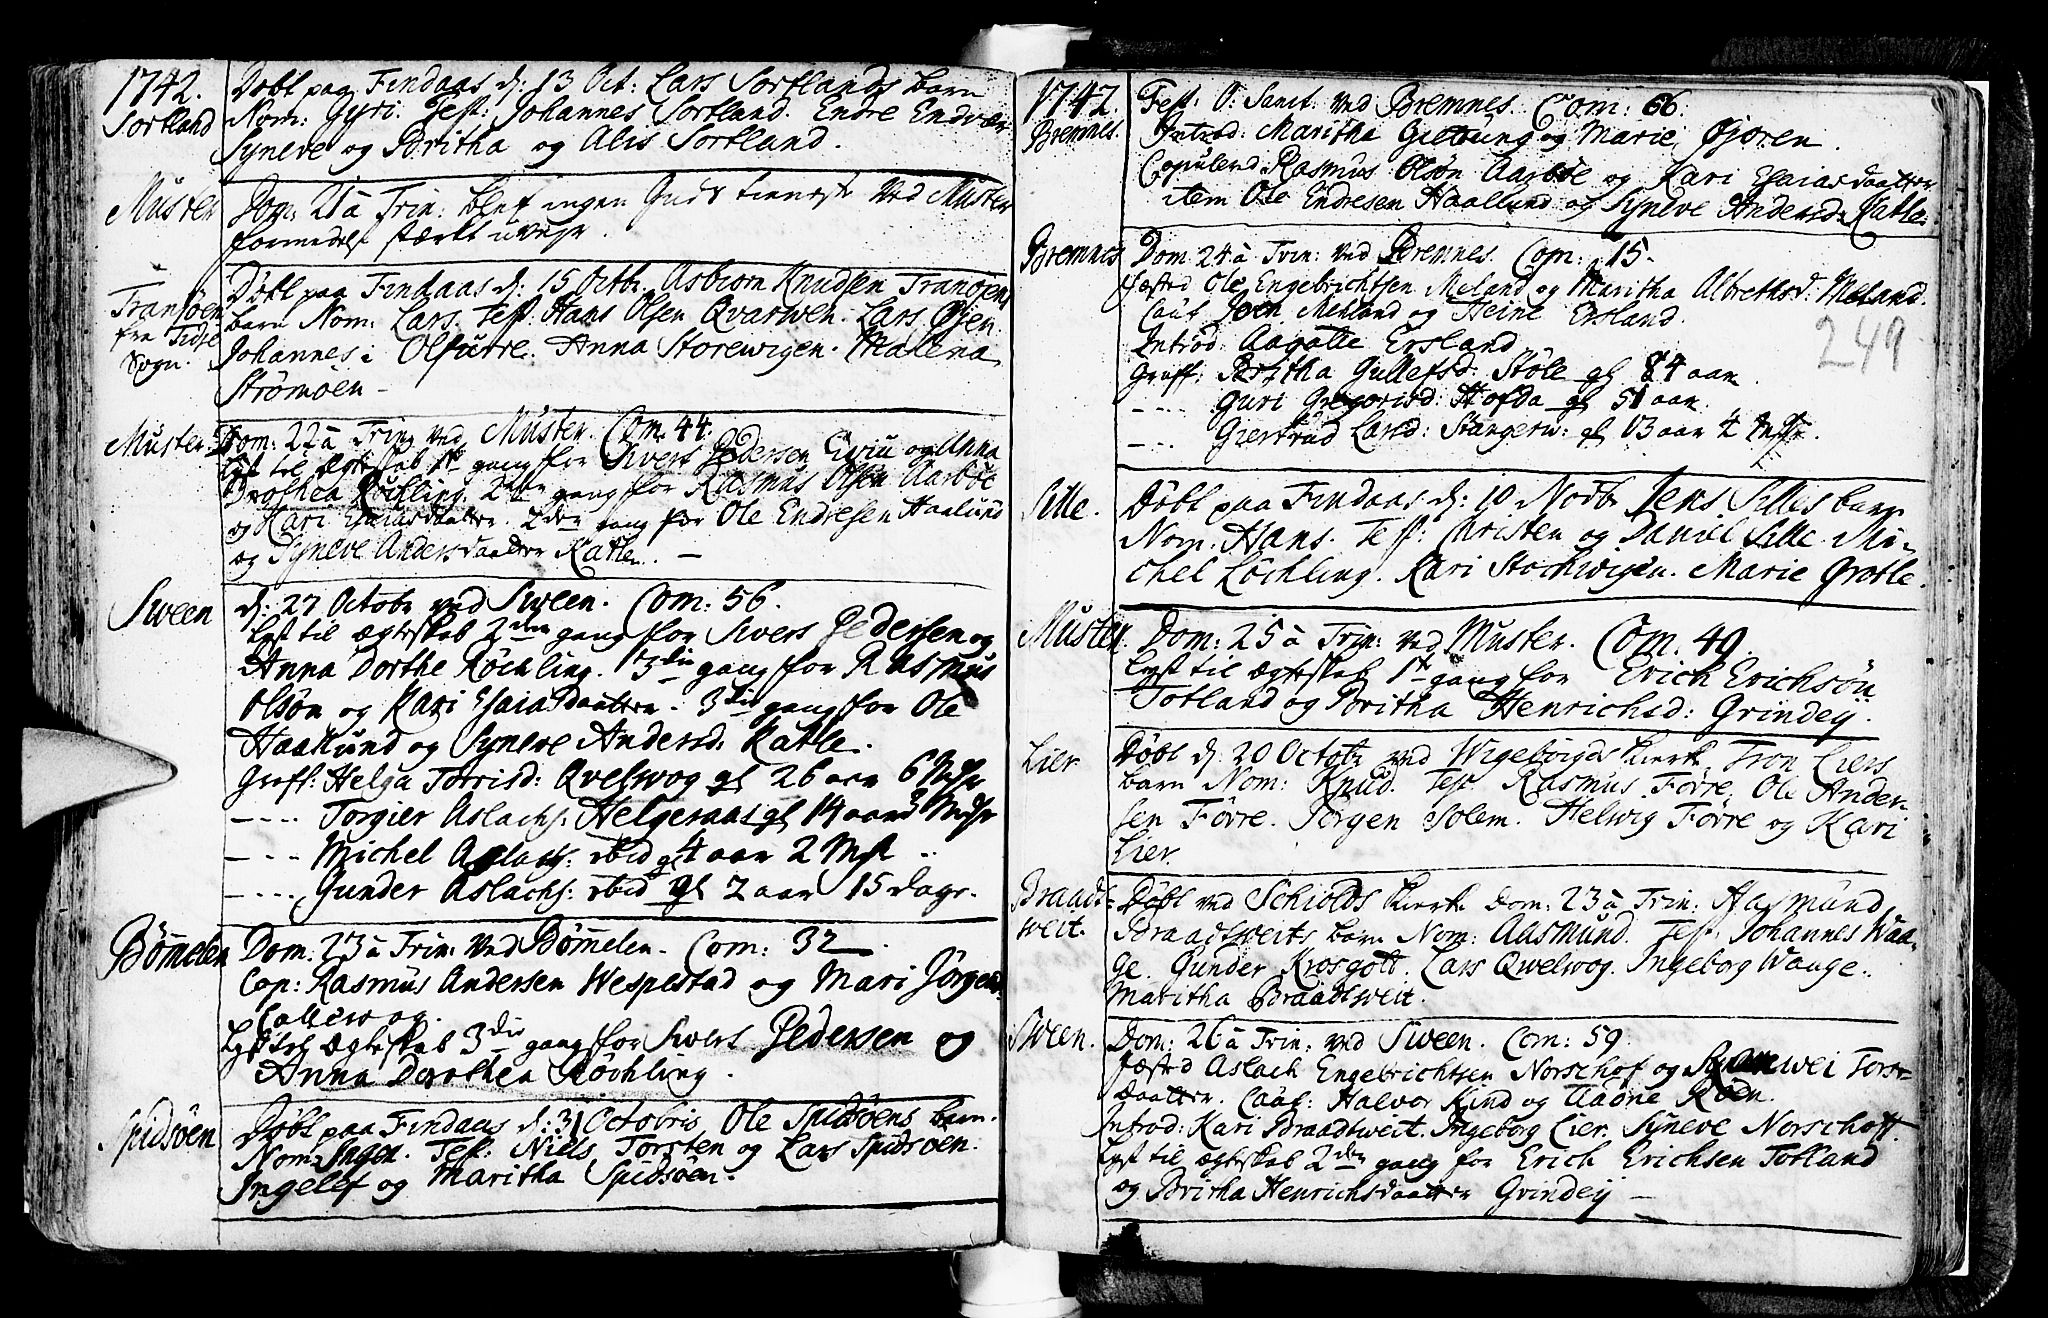 1742.
Sortland
Döbt paa Findaas d: 13 Oct: Lars Sortlands barn
Nom: Gyri. Test: Johannes Sortland. Endre
Syneve og Britha og Alis Sortland.
Muster
Dom: 21 à Trin: blef ingen Guds tieneste ved Muster
formedelst stærkt uveyr.
Tranöen
fra Tidse
Sogn.
Döbt paa Findaas d: 15 Octbr Asbiörn Knudsen Tranöens
barn Nom: Lars. Test: Hans Olsen Qvarwen. Lars Öjen
Johannes i Olfurre. Anna Storewigen. Malena
Strömöen
Muster
Dom: 22 à Trin: ved Muster. Com: 44.
Lyst til Ægteskab 1st gang for Sivers Pedersen og Anna
Drothea Röchling. 2den gang for Rasmus Olsen Aarböe
og Kari Esaiasdaatter. 2den gang for Ole Endresen Haalund
og Syneve Andersdaatter Katle.
Sween
d: 27 Octobr ved Sween. Com: 56.
Lyst til ægteskab 2den gang for Sivers Pedersen og
Anna Dorthe Röchling. 3die gang for Rasmus
Olsön og Kari Esaiasdaatter. 3die gang for Ole
Haaklund og Syneve Andersd: Katle.
Graff: Helga Torrisd: Qvelwog gl 26 aar 6 Mdr
---- Torgier Aslachs: Helgeraas gl 14 aar 3 Mdr
---- Michel Aslachs: ibid gl 4 aar 2 Mdr
---- Gunder Aslachs: ibid gl 2 aar 15 dage.
Bömelen
Dom: 23 à Trin: ved Bömelen. Com: 32.
Cop: Rasmus Andersen Wespestad og Mari Jörgensd:
Lyst til ægteskab 3die gang for Sivert Pedersen og
Anna Dorothea Röchling.
Spidsöen
Döbt paa Findaas d: 31 Octobris Ole Spidsöens barn.
Nom: Test: Niels Torsten og Lars Spidsöen.
Ingelef og Maritha Spidsöen.
1742.
Bremnes.
Fest: O: Sanct: ved Bremnes. Com: 66.
Introd: Maritha og Marie Öjören.
Copulered Rasmus Olsön Aarböe og Kari Esaiasdaatter
item Ole Endresen Haallund og Syneve Andersd: Katle.
Bremnes
Dom 24 à Trin: ved Bremnes. Com: 15.
fæsted Ole Engebrichtsen Meland og Maritha Albrethsd: Meland.
Caut Joen Mehland og Heine Ersland.
Introd: Aagotte Ersland
Graff: Britha Gullefsd: Stöle gl 84 aar.
---- Guri Gregorisd: Hofda gl 51 aar.
---- Giertrud Larsd: gl 03 aar
249
Sille.
Döbt paa Findaas d: 10 Novbr Jens Silles barn
Nom: Hans. Test: Christen og Daniel Sille. Mi-
chel Löchling. Kari Stochwigen. Marie Grotle.
Muster.
Dom: 25 à Trin: ved Muster. Com. 49.
Lyst til ægteskab 1st gang for Erich Erichsön
Totland og Britha Henrichsd: Grindeÿ.
Lier
Döbt d: 20 Octobr ved Wigebögds Kierk Tron Liers
barn Nom: Knud. Test Rasmus Förre. Ole Ander-
sen Förre. Jörgen Solem. Helwig Förre og Kari
Lier.
Braadt-
weit.
Döbt ved Schiolds Kierk Dom: 23 à Trin: Aasmund
Braadtweits barn Nom: Aasmund. Test: Johannes Waa-
ge. Gunder Krosgott. Lars Qwelwog. Ingeborg Waage.
Maritha Braadtweit.
Sween.
Dom: 26 à Trin: ved Sween. Com: 59.
fæsted Aslach Engebrichtsen Norschof og Tors-
daatter. Caut: Halvor Kind og Röen.
Introd: Kari Braadtweit. Ingeborg Lier. Syneve Norschoff.
Lyst til ægteskab 2den gang for Erich Erichsen Totland
og Britha Henrichsdaatter Grindeÿ